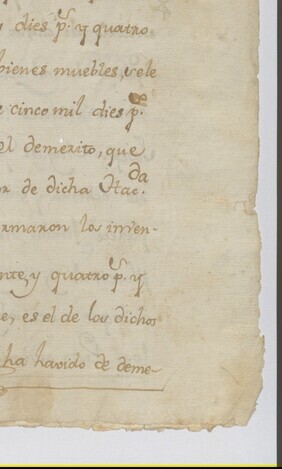 dies p.s y quatro
bienes muebles, sele
cinco mil dies p.s
el demerito, que
de dicha Hac.da
rmaron los inven-
nte, y quatro p.s y
e, es el de los dichos
ha havido de deme-